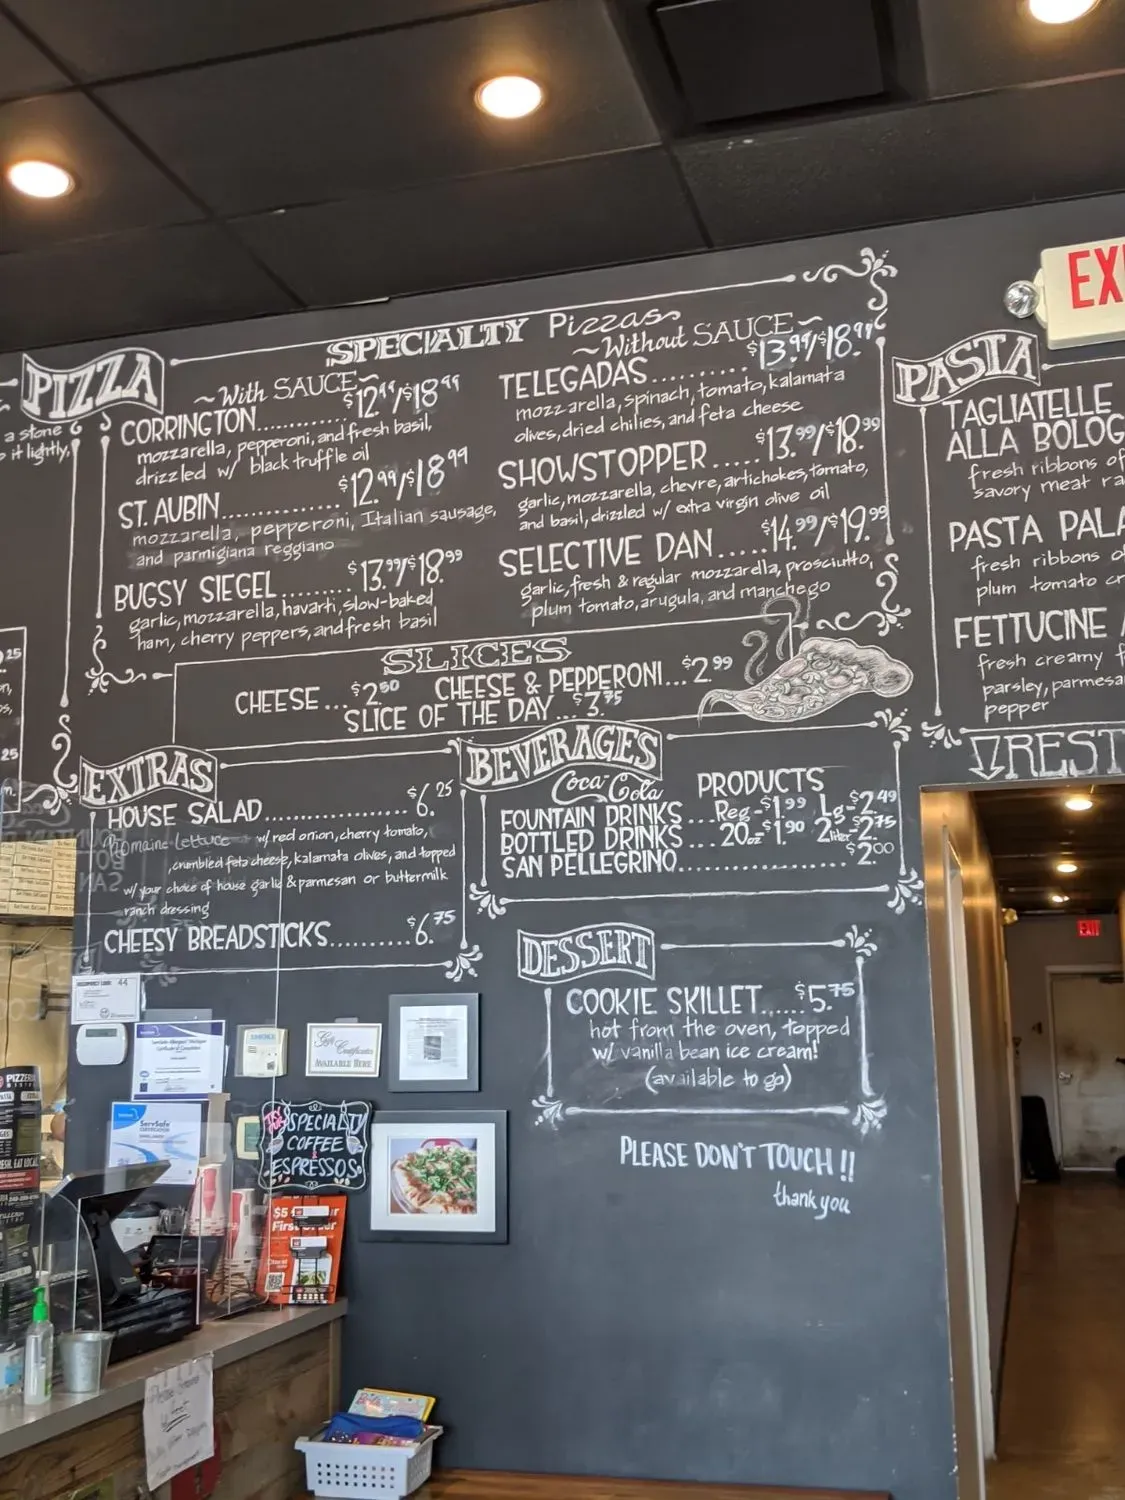 EXI
PIZZA
a stone
o it lightly,
SPECIALTY Pizzas
~With SAUCE~
CORRINGTON............$12.99/$18.99
mozzarella, pepperoni, and fresh basil,
drizzled w/ black truffle oil
ST. AUBIN...............$12.99/$18.99
mozzarella, pepperoni, Italian sausage,
and parmigiana reggiano
BUGSY SIEGEL.........$13.99/$18.99
garlic, mozzarella, havarti, slow-baked
ham, cherry peppers, and fresh basil
~Without SAUCE~
TELEGADAS..........$13.99/$18.99
mozzarella, spinach, tomato, kalamata
olives, dried chilies, and feta cheese
SHOWSTOPPER.....$13.99/$18.99
garlic, mozzarella, chevre, artichokes, tomato,
and basil, drizzled w/ extra virgin olive oil
SELECTIVE DAN.....$14.99/$19.99
garlic, fresh & regular mozzarella, prosciutto,
plum tomato, arugula, and manchego
SLICES
CHEESE...$2.50 CHEESE & PEPPERONI...$2.99
SLICE OF THE DAY...$3.75
PASTA
TAGLIATELLE
ALLA BOLOG
fresh ribbons of
savory meat ra
PASTA PALA
fresh ribbons o
plum tomato cr
FETTUCINE A
fresh creamy f
parsley, parmesa
pepper
REST
EXIT
EXTRAS
HOUSE SALAD..................$6.25
Romaine lettuce w/ red onion, cherry tomato,
crumbled feta cheese, kalamata olives, and topped
w/ your choice of house garlic & parmesan or buttermilk
ranch dressing
CHEESY BREADSTICKS..........$6.75
BEVERAGES
Coca-Cola PRODUCTS
FOUNTAIN DRINKS...Reg-$1.99 Lg-$2.49
BOTTLED DRINKS...20oz-$1.90 2liter-$2.75
SAN PELLEGRINO..................$2.00
DESSERT
COOKIE SKILLET......$5.75
hot from the oven, topped
w/ vanilla bean ice cream!
(available to go)
PLEASE DON'T TOUCH!!
thank you
44
ServSafe
Gift Certificates
AVAILABLE HERE
SPECIALTY
COFFEE
&
ESPRESSOS
PIZZERI